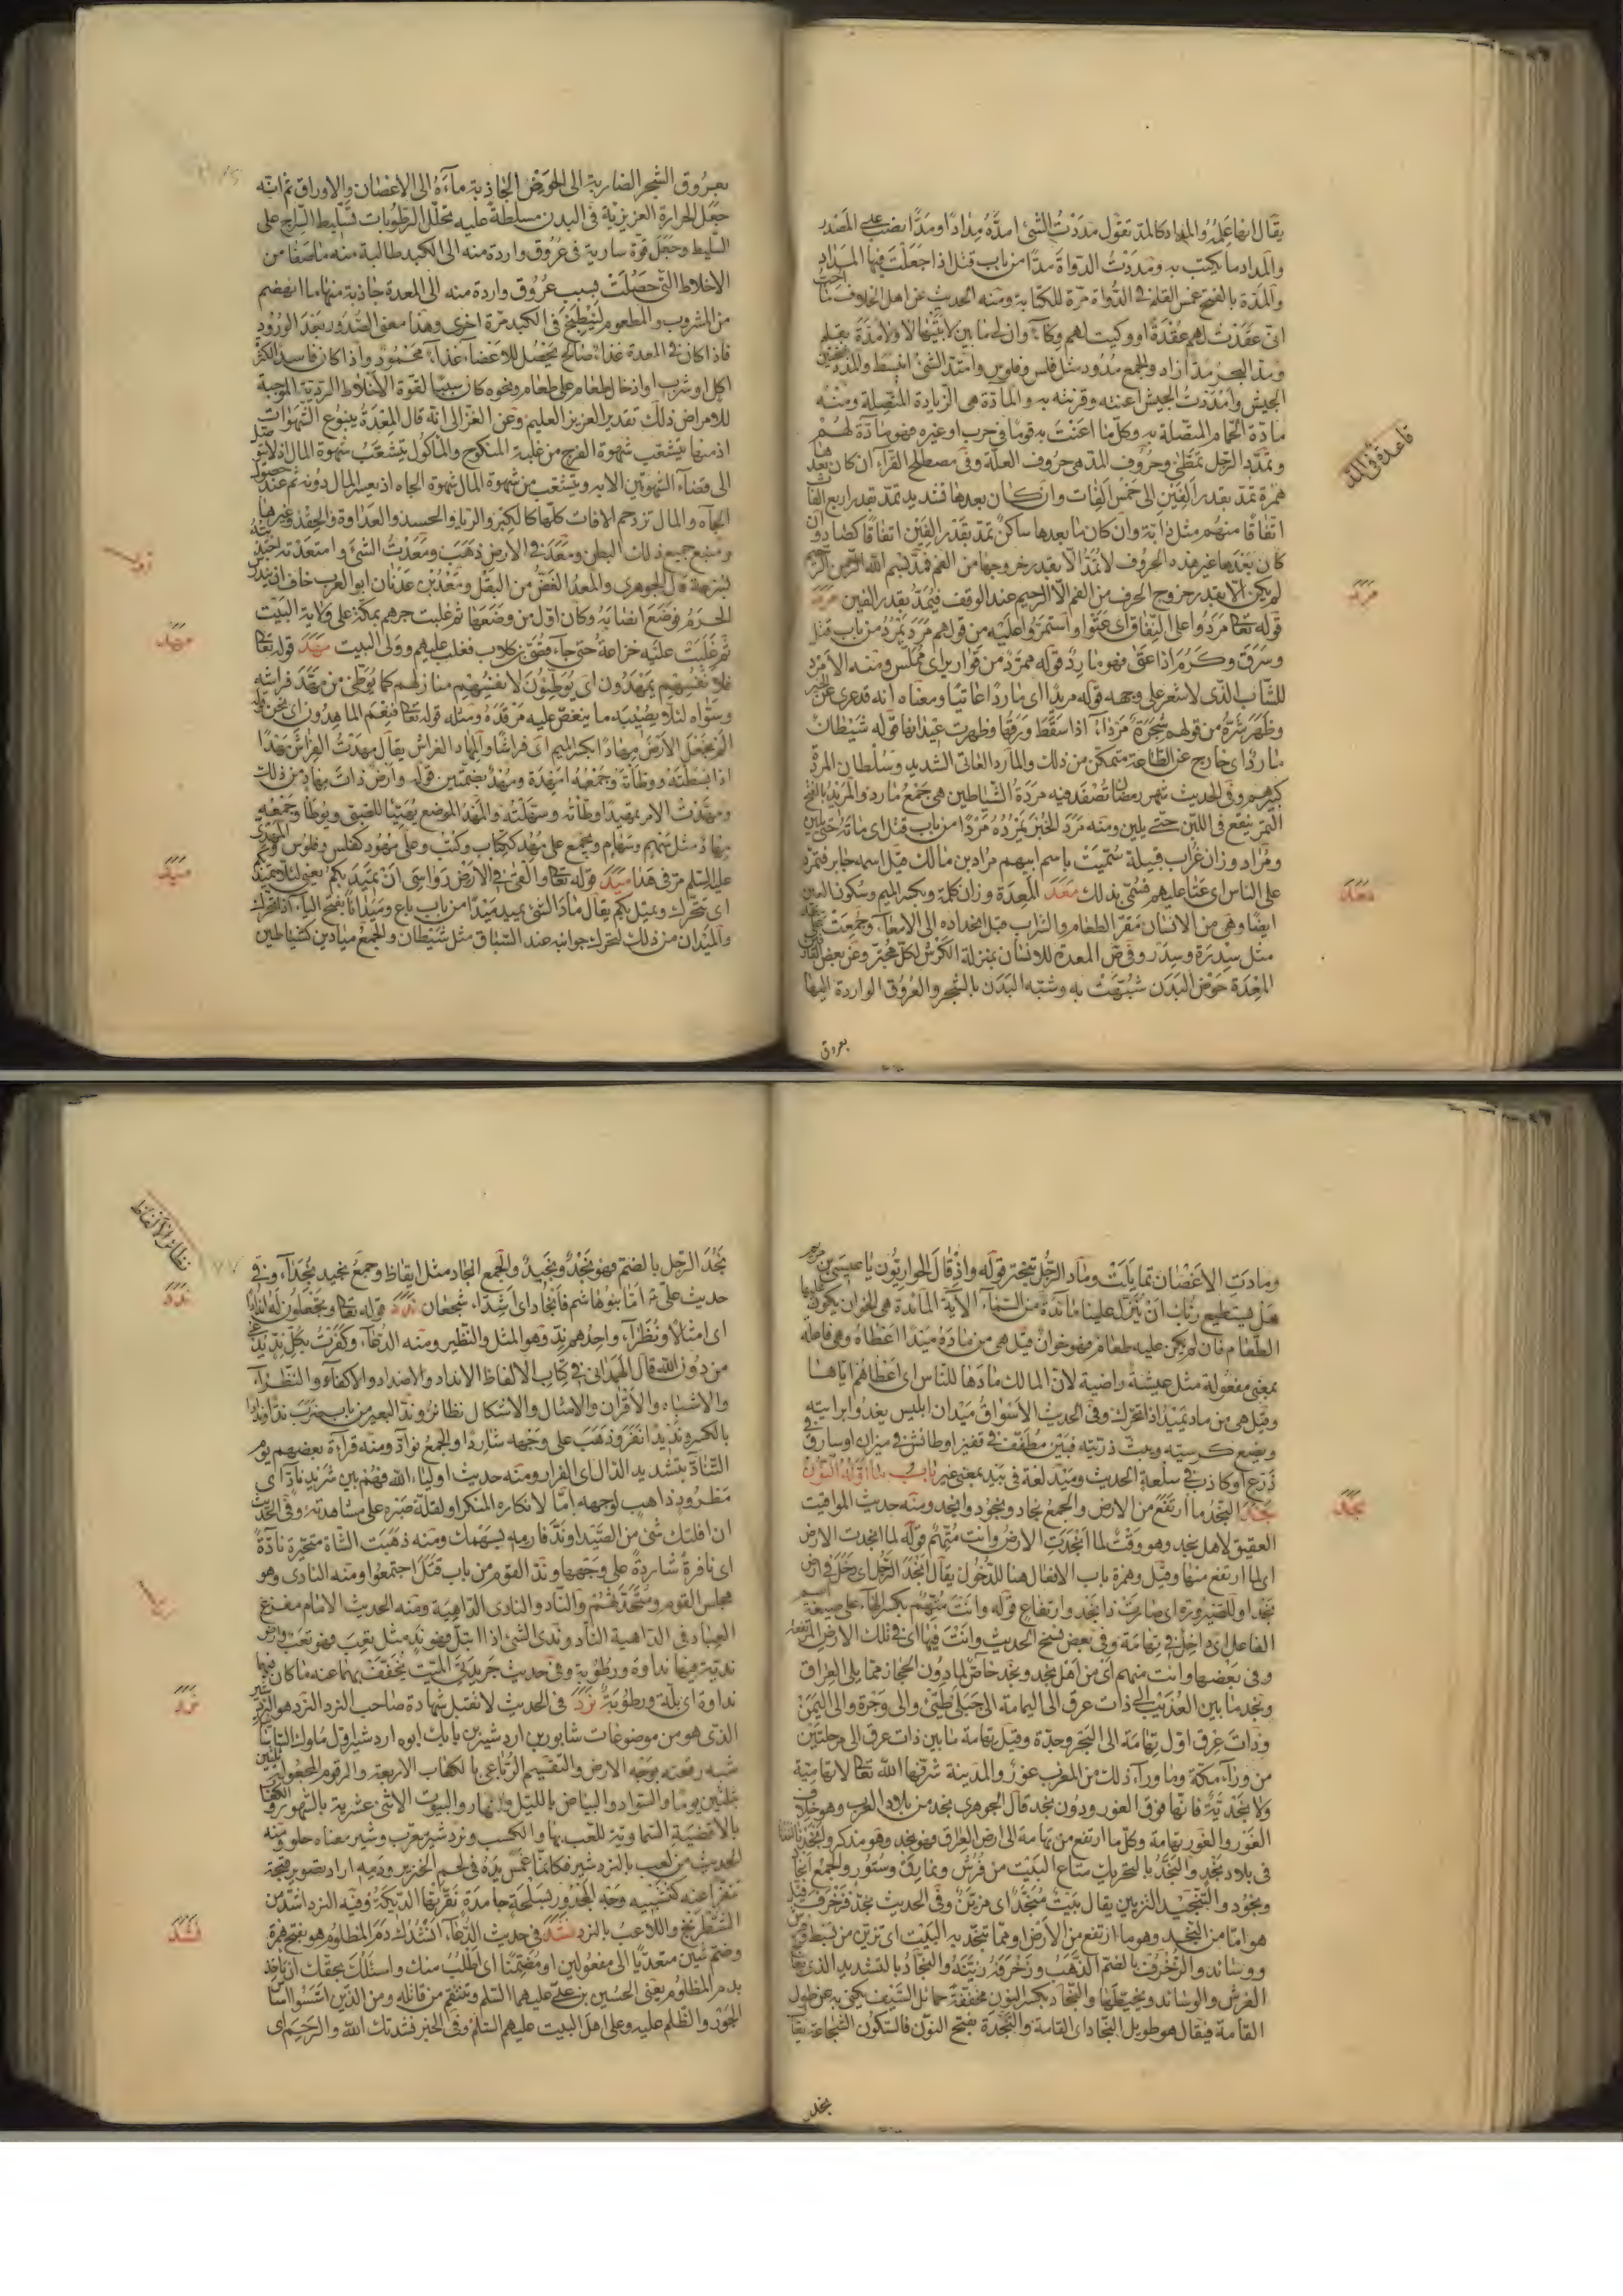 يقال انهاعلم والمداد كالمد تقول مددت الشئ امدّه مدادا ومدّا نصب على المصدر
والمداد ما يكتب به ومددت الدواة مدّا من باب قتل اذا جعلت فيها المداد
والمدة بالفتح غمس القلم في الدواة مرة للكتابة ومنه الحديث عن اهل الخلاف ما احبّ
انى عقدت لهم عقدة او وكيت لهم وكاء وان لى ما بين لابتيها لا ولا مدّة بقلم
ومدّ البحر مدّا زاد والجمع مدود مثل فلس وفلوس وامتدّ الشئ انبسط
الجيش وامددت الجيش اعنته وقويته به والمادّة هى الزيادة المتصلة ومنه
مادة الحمام المتصلة به وكل ما اعنت به قوما في حرب او غيره فهو مادّة لهم
وتمدّد الرجل تمطّى وحروف المد هى حروف العلة وفى مصطلح القراء ان كان بعدها
همزة تمدّ بقدر الفين الى خمس الفات وان كان بعدها تشديد تمدّ بقدر اربع الفات
اتفاقا منهم مثل دابة وان كان ما بعدها ساكن تمدّ بقدر الفين اتفاقا كصاد وان
كان بعدها غير هذه الحروف لا تمدّ الا بقدر خروجها من الفم فمدّ بسم الله الرحمن الرحيم
لم يكن الا بقدر خروج الحرف من الفم الا الرحيم عند الوقف فيمدّ بقدر الفين مرد
قوله تعالى مردوا على النفاق اى عتوا واستمروا عليه من قولهم مرد يمرد من باب قتل
وسرق وكرم اذا عتى فهو مارد قوله ممرّد من قوارير اى مملّس ومنه الامرد
للشاب الذى لا شعر على وجهه قوله مريدا اى ماردا عاتيا ومعناه انه قد عرى عن الخير
وظهر شره من قولهم شجرة مرداء اذا سقط ورقها وظهرت عيدانها قوله شيطان
مارد اى خارج عن الطاعة متمكن من ذلك والمارد العاتى الشديد وسلطان المردة
كبيرهم وفى الحديث شهر رمضان تصفد فيه مردة الشياطين هى جمع مارد والمريد بالفتح
التمر ينقع في اللبن حتى يلين ومنه مرد الخبز يمرده مردا من باب قتل اى ماثه حتى يلين
ومراد وزان غراب قبيلة سميت باسم ابيهم مراد بن مالك قيل اسمه جابر فتمرد
على الناس اى عتا عليهم فسمى بذلك معد المعدة وزان كلمة وبكسر الميم وسكون العين
ايضا وهى من الانسان مقر الطعام والشراب قبل انحداره الى الامعاء وجمعت على
مثل سدرة وسدر وفى ص المعدة للانسان بمنزلة الكرش لكل مجتر وعن بعض
المعدة حوض البدن شبهت به وشبه البدن بالشجر والعروق الواردة اليها
بعروق
قاعدة في المد
مرد
معد
بعروق الشجر الضاربة الى الحوض الجاذبة ماءه الى الاغصان والاوراق ثم انه
جعل الحرارة الغريزية في البدن مسلطة عليه تحلل الرطوبات تسليط السراج على
السليط وجعل قوة سارية في عروق واردة منه الى الكبد طالبة منه ما صفا من
الاخلاط التى حصلت بسبب عروق واردة منه الى المعدة جاذبة منها ما انهضم
من المشروب والمطعوم لينطبخ في الكبد مرة اخرى وهذا معنى الصدور بعد الورود
فاذا كان في المعدة غذاء صالح يحصل للاعضاء غذاء محمود واذا كان فاسدا لكثرة
اكل او شرب او ادخال طعام على طعام ونحوه كان سببا لقوة الاخلاط الردية الموجبة
للامراض ذلك تقدير العزيز العليم وعن الغزالى انه قال المعدة ينبوع الشهوات
اذ منها يتشعب شهوة الفرج من غلبة المنكوح والمأكول يتشعب شهوة المال اذ لا يتوصل
الى قضاء الشهوتين الا به ويتشعب من شهوة المال شهوة الجاه اذ بعسر المال دونه ثم عند حصول
الجاه والمال تزدحم الافات كلها كالكبر والرياء والحسد والعداوة والحقد وغيرها
ومنبع جميع ذلك البطن ومعد في الارض ذهب ومعدت الشئ وامتعدته اجتذبته
بسرعة قال الجوهرى والمعد الغض من البقل ومعد بن عدنان ابو العرب خاف ان يندرس
الحرم فوضع انصابه وكان اول من وضعها ثم غلبت جرهم بمكة على ولاية البيت
ثم غلبت عليه خزاعة حتى جاء قصى بن كلاب فغلب عليهم وولى البيت مهد قوله تعالى
فلانفسهم يمهدون اى يوطئون لانفسهم منازلهم كما يوطئ من مهد فراشه
وسواه لئلا يصيبه ما ينغص عليه مرقده ومثله قوله تعالى فنعم الماهدون اى نحن قوله
الم نجعل الارض مهادا بكسر الميم اى فراشا والمهاد الفراش يقال مهدت الفراش مهدا
اذا بسطته ووطأته وجمعه امهدة ومهد بضمتين قوله وارض ذات مهاد من ذلك
ومهدت الامر تمهيدا وطأته وسهلته والمهد الموضع يهيّا للصبى ويوطأ وجمعه
مهاد مثل سهم وسهام ويجمع على مهد ككتاب وكتب وعلى مهود كفلس وفلوس والمهدى
عليه السلم مر في هدا ميد قوله تعالى والقى في الارض رواسى ان تميد بكم يعنى لئلا تميد
اى تتحرك وتميل بكم يقال ماد الشئ يميد ميدا من باب باع وميدانا بفتح الياء اذا تحرك
والميدان من ذلك لتحرك جوانبه عند السباق مثل شيطان والجمع ميادين كشياطين
مهد
ميد
ومادت الاغصان تمايلت وماد الرجل تبختر قوله واذ قال الحواريون يا عيسى بن مريم
هل يستطيع ربك ان ينزل علينا مائدة من السماء الاية المائدة هى الخوان يكون عليها
الطعام فان لم يكن عليه طعام فهو خوان قيل هى من ماده ميدا اعطاه وهى فاعلة
بمعنى مفعولة مثل عيشة راضية لان المالك مادها للناس اى اعطاهم اياها
وقيل هى من ماد يميد اذا تحرك وفى الحديث الاسواق ميدان ابليس يغدوا برايته
ويضع كرسيه ويبث ذريته فبين مطفف في قفيز او طائش في ميزان او سارق في
ذرع او كاذب في سلعة الحديث وميد لغة في بيد بمعنى غير باب ما اوله النون
نجد النجد ما ارتفع من الارض والجمع نجاد ونجود وانجد ومنه حديث المواقيت
العقيق لاهل نجد وهو وقت لما انجدت الارض وانت متهم قوله لما انجدت الارض
اى لما ارتفع منها وقيل وهمزة باب الافعال هنا للدخول يقال انجد الرجل اى دخل في ارض
نجد او للصيرورة اى صارت ذا نجد وارتفاع قوله وانت متهم بكسر الهاء على صيغة اسم
الفاعل اى داخل في تهامة وفى بعض نسخ الحديث وانت فيها اى في تلك الارض المرتفعة
وفى بعضها وانت منهم اى من اهل نجد ونجد خاص لما دون الحجاز مما يلى العراق
ونجد ما بين العذيب الى ذات عرق الى اليمامة الى جبلى طيئ والى وجرة والى اليمن
وذات عرق اول تهامة الى البحر وجدة وقيل تهامة ما بين ذات عرق الى مرحلتين
من وراء مكة وما وراء ذلك من المغرب غور والمدينة شرفها الله تعالى لا تهامية
ولا نجدية فانها فوق الغور ودون نجد قال الجوهرى نجد من بلاد العرب وهو خلاف
الغور والغور تهامة وكل ما ارتفع من تهامة الى ارض العراق فهو نجد وهو مذكر
في بلاد نجد والنجد بالتحريك متاع البيت من فرش ونمارق وستور والجمع انجاد
ونجود والتنجيد التزيين يقال بيت منجد اى مزين وفى الحديث نجد فزخرف قيل
هو اما من النجد وهو ما ارتفع من الارض او مما ينجد به البيت اى تزين من بسط وفرش
ووسائد والزخرف بالضم الذهب وزخرفه زينه والنجاد بالتشديد الذى يعالج
الفرش والوسائد ويخيطها والنجاد بكسر النون مخففة حمائل السيف يكنى به عن طول
القامة فيقال هو طويل النجاد اى القامة والنجدة بفتح النون فالسكون الشجاعة يقال
نجد
نجد
نجد الرجل بالضم فهو نجد ونجيد والجمع انجاد مثل ايقاظ وجمع نجيد نجداء وفى
حديث على ع اما بنو هاشم فانجاد اى اشداء شجعان ندد قوله تعالى وتجعلون له اندادا
اى امثالا ونظراء واحدهم ند وهو المثل والنظير ومنه الدعاء وكفرت بكل ند يدعى
من دون الله قال الهمدانى في كتاب الالفاظ الانداد والاضداد والاكفاء والنظراء
والاشباه والاقران والامثال والاشكال نظائر وند البعير من باب ضرب ندا وندادا
بالكسر ونديدا نفر وذهب على وجهه شاردا والجمع نواد ومنه قراءة بعضهم يوم
التناد بتشديد الدال اى الفرار ومنه حديث اولياء الله فهم بين شريد ناد اى
مطرود ذاهب لوجهه اما لانكاره المنكر او لقلة صبره على مشاهدته وفى الحديث
ان افلتك شئ من الصيد او ند فارمه بسهمك ومنه ذهبت الشاة متحيرة نادة
اى نافرة شاردة على وجهها وندا القوم من باب قتل اجتمعوا ومنه النادى وهو
مجلس القوم ومتحدثهم والناد والنادى الداهية ومنه الحديث الامام مفزع
العباد في الداهية الناد وندى الشئ اذا ابتل فهو ند مثل تعب فهو تعب وارض
ندية فيها نداوة ورطوبة وفى حديث جريدتى الميت يخفف بهما عنه ما كان فيهما
نداوة اى بلة ورطوبة نرد في الحديث لا تقبل شهادة صاحب النرد النرد هو النردشير
الذى هو من موضوعات شابور بن اردشير بن بابك ابوه اردشير اول ملوك الساسانية
شبه رقعته بوجه الارض والتقسيم الرباعى بالكعاب الاربعة والرقوم المجعولة ثلثين
بثلثين يوما والسواد والبياض بالليل والنهار والبيوت الاثنى عشرية بالشهور والكعاب
بالاقضية السماوية للعب بها والكسب ونردشير معرب وشير معناه حلو ومنه
الحديث من لعب بالنردشير فكانما غمس يده في لحم الخنزير ودمه اراد تصوير قبحه
تنفيرا عنه كتشبيه وجه المجدور بسلحة جامدة نقرتها الديكة وفيه النرد اشد من
الشطرنج واللاعب بالنرد نشد في حديث الدعاء انشدك دم المظلوم هو بفتح همزة
وضم شين متعديا الى مفعولين او مضمنا اى اطلب منك واسئلك بحقك ان تاخذ
بدم المظلوم يعنى الحسين بن على عليهما السلم وتنتقم من قاتله ومن الذين اسسوا اساس
الجور والظلم عليه وعلى اهل البيت عليهم السلم وفى الخبر نشدتك الله والرحم اى
نظائر الالفاظ
ندد
نرد
نشد